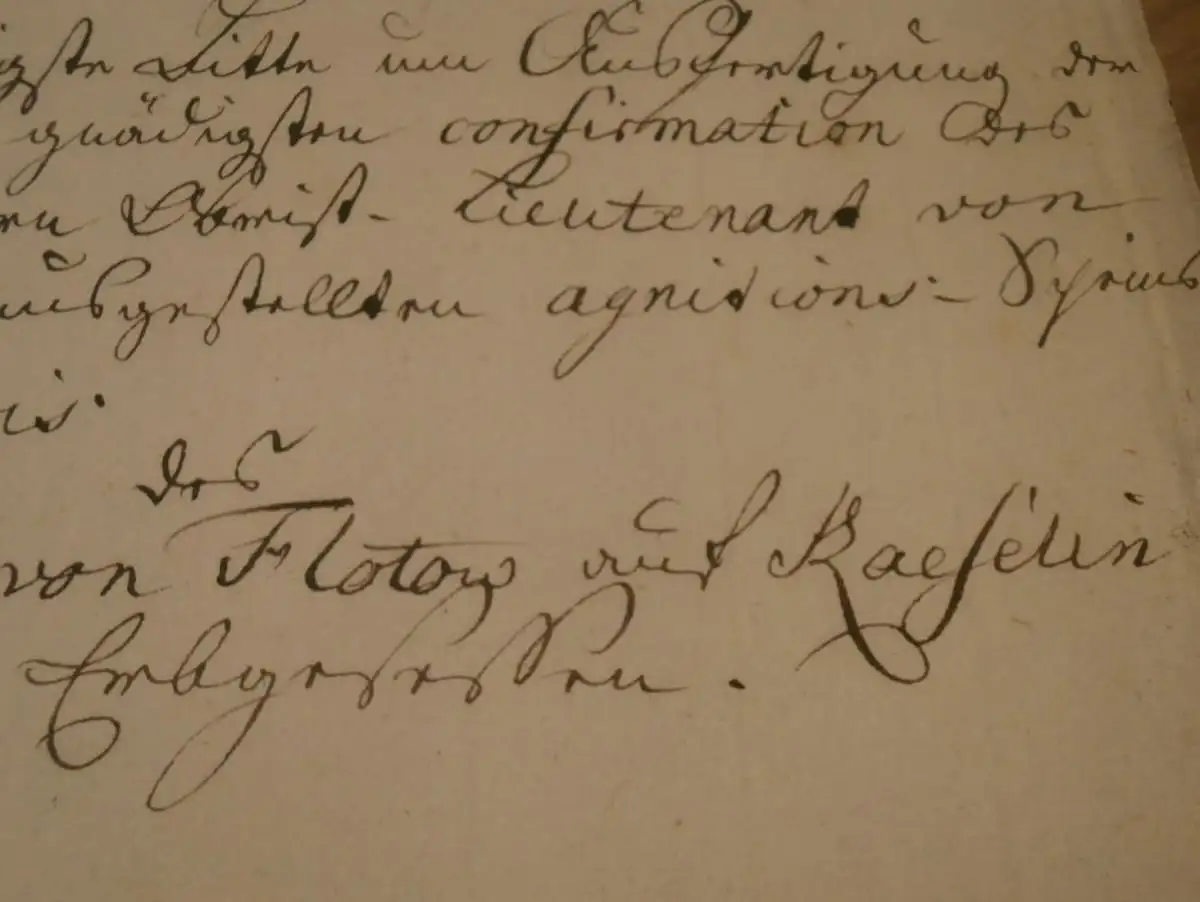 igste Bitte um Ausfertigung der
gnädigsten confirmation des
en Obrist- Lieutenant von
ausgestellten agnitions-Scheins
is.
des
von Flotow auf Kaeselin
Erbgesessen.